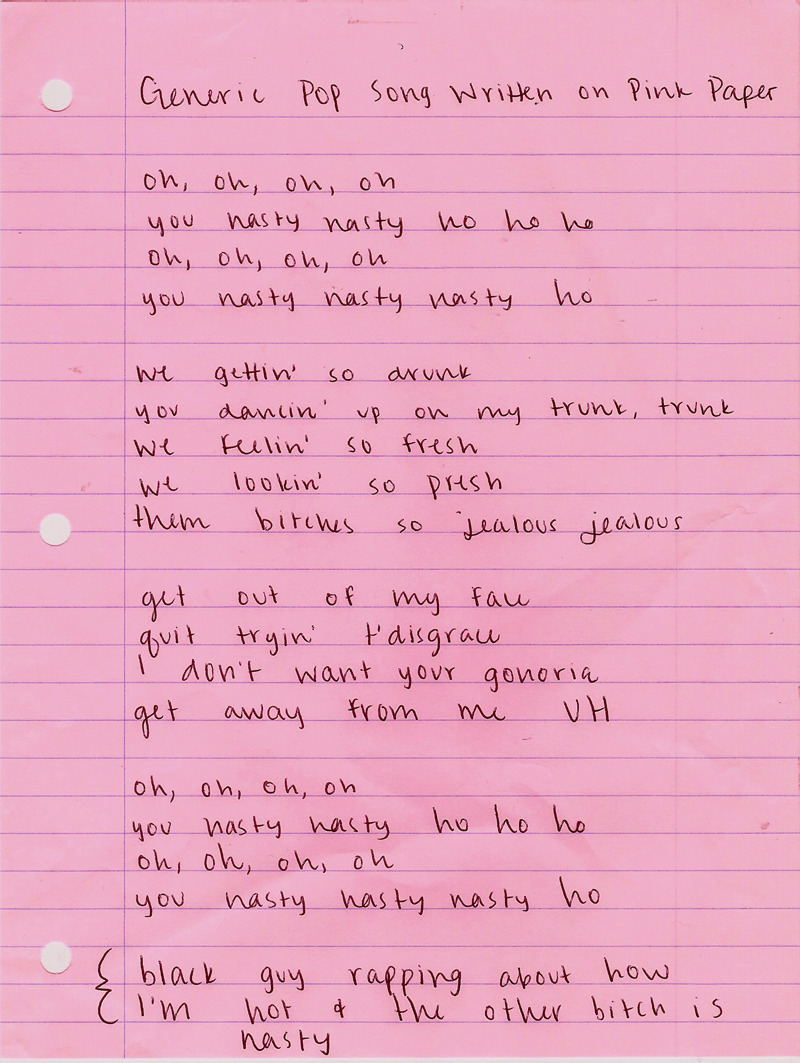 Generic Pop Song Written on Pink Paper
oh, oh, oh, oh
you nasty nasty ho ho ho
oh, oh, oh, oh
you nasty nasty nasty ho
we gettin' so drunk
you dancin' up on my trunk, trunk
we feelin' so fresh
we lookin' so presh
them bitches so jealous jealous
get out of my face
quit tryin' t'disgrace
I don't want your gonoria
get away from me UH
oh, oh, oh, oh
you nasty nasty ho ho ho
oh, oh, oh, oh
you nasty nasty nasty ho
black guy rapping about how
I'm hot & the other bitch is
nasty